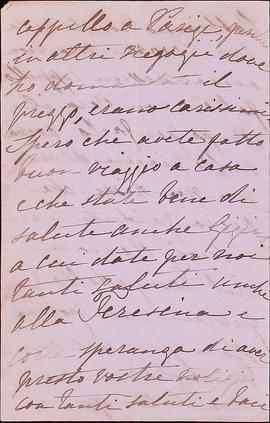 cappello a Parigi, perchè
in altri negozi dove
ho domandato il
prezzo, erano carissimi
Spero che avete fatto
buon viaggio a casa
e che state bene di
salute anche
a cui date per noi
tanti saluti anche
alla Teresina e
colla speranza di aver
presto vostre notizie
con tanti saluti e baci